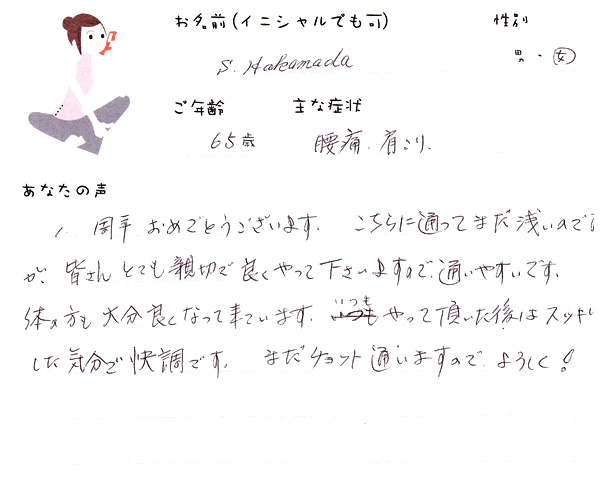 お名前(イニシャルでも可) 性別
S. Hakamada 男・女
ご年齢 主な症状
65歳 腰痛、肩こり、
あなたの声
1周年おめでとうございます。こちらに通ってまだ浅いので
が、皆さんとても親切で良くやって下さいますので、通いやすいです。
体の方も大分良くなって来ています。いつもやって頂いた後はスッキリ
した気分で快調です。まだチョット通いますので、よろしく!